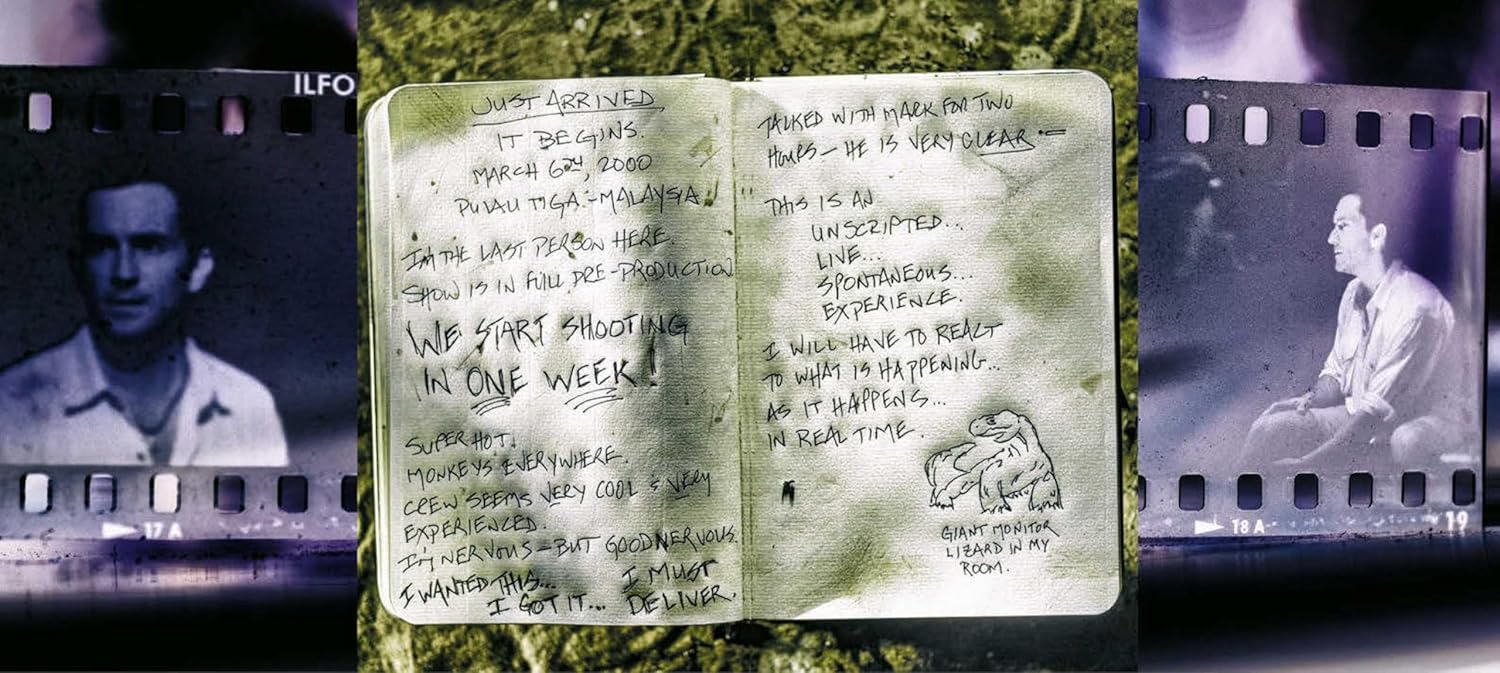 ILFO
17 A
JUST ARRIVED
IT BEGINS.
MARCH 6TH, 2000
PULAU TIGA - MALAYSIA
I'M THE LAST PERSON HERE.
SHOW IS IN FULL PRE-PRODUCTION
WE START SHOOTING
IN ONE WEEK!
SUPER HOT.
MONKEYS EVERYWHERE.
CREW SEEMS VERY COOL & VERY
EXPERIENCED.
I'M NERVOUS - BUT GOOD NERVOUS.
I WANTED THIS...
I GOT IT...
I MUST
DELIVER.
TALKED WITH MARK FOR TWO
HOURS - HE IS VERY CLEAR:-
THIS IS AN
UNSCRIPTED...
LIVE...
SPONTANEOUS...
EXPERIENCE.
I WILL HAVE TO REACT
TO WHAT IS HAPPENING...
AS IT HAPPENS...
IN REAL TIME.
GIANT MONITOR
LIZARD IN MY
ROOM.
18 A
19